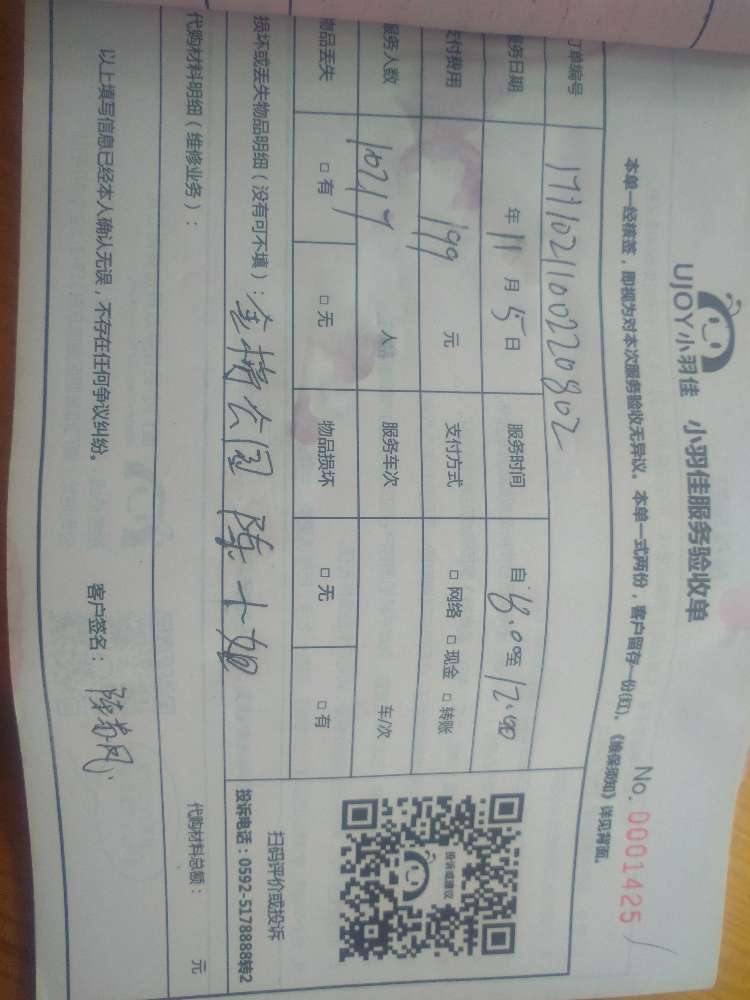 UJOY小羽佳 小羽佳服务验收单
No. 0001425
本单一经核签，即视为对本次服务验收无异议。本单一式两份，客户留存一份(红)。《维保须知》详见背面。
订单编号 1711021100220802
服务日期 年 11 月 5 日 服务时间 自 8:00至 12:00
支付费用 199 元 支付方式 □ 网络 □ 现金 □ 转账
服务人数 10217 人 服务车次 车/次
物品丢失 □ 有 □ 无 物品损坏 □ 无 □ 有
损坏或丢失物品明细（没有可不填）： 公园 陈 姐
投诉或建议
扫码评价或投诉
投诉电话：0592-5178888转2
代购材料明细（维修业务）： 代购材料总额： 元
以上填写信息已经本人确认无误，不存在任何争议纠纷。 客户签名： 陈